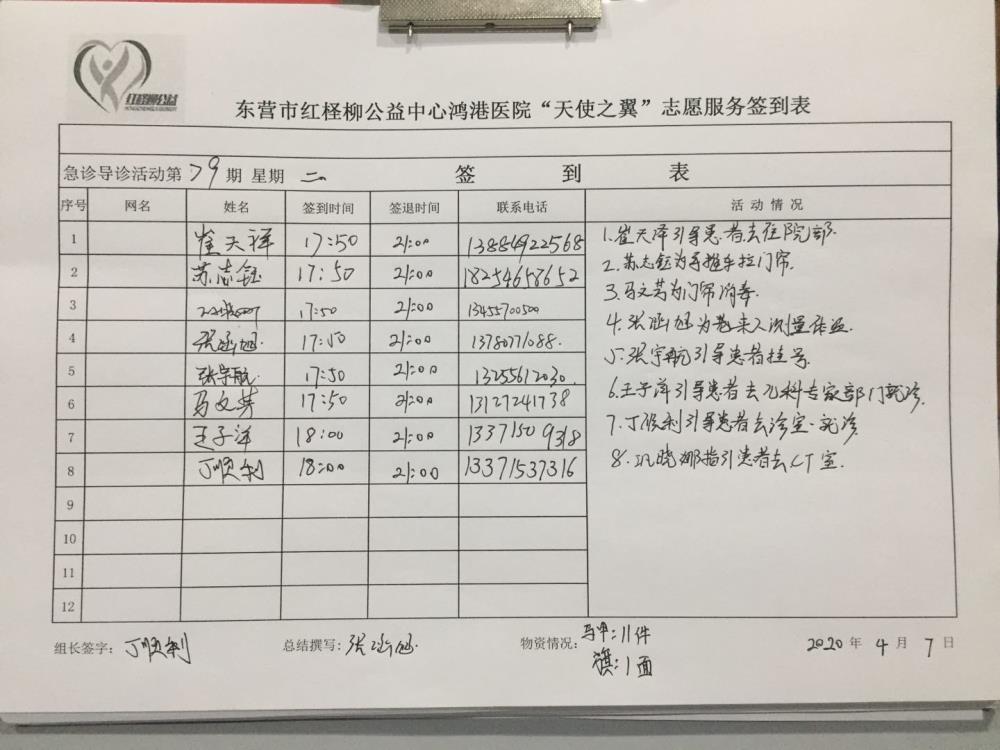 红柽柳公益
东营市红柽柳公益中心鸿港医院“天使之翼”志愿服务签到表
急诊导诊活动第79期 星期 二 签 到 表
序号 网名 姓名 签到时间 签退时间 联系电话 活动情况
1 崔天祥 17:50 21:00 13884922568
2 苏志钰 17:50 21:00 18254658652
3 17:50 21:00 13455700500
4 张函旭 17:50 21:00 13780771088.
5 张宇航 17:50 21:00 13255612030.
6 马文英 17:50 21:00 13127241738
7 王子洋 18:00 21:00 13371509318
8 丁顺利 18:00 21:00 13371537316
9
10
11
12
1.崔天泽引导患者去住院部.
2.苏志钰为手推车拉门帘.
3.马文芳为门帘消毒.
4.张函旭为来人测量体温.
5.张宇航引导患者挂号
6.王子洋引导患者去儿科专家部门就诊.
7.丁顺利引导患者去诊室就诊
8.巩晓娜指引患者去CT室.
组长签字: 丁顺利 总结撰写: 张函旭. 物资情况: 马甲:11件
旗:1面
2020 年 4 月 7 日